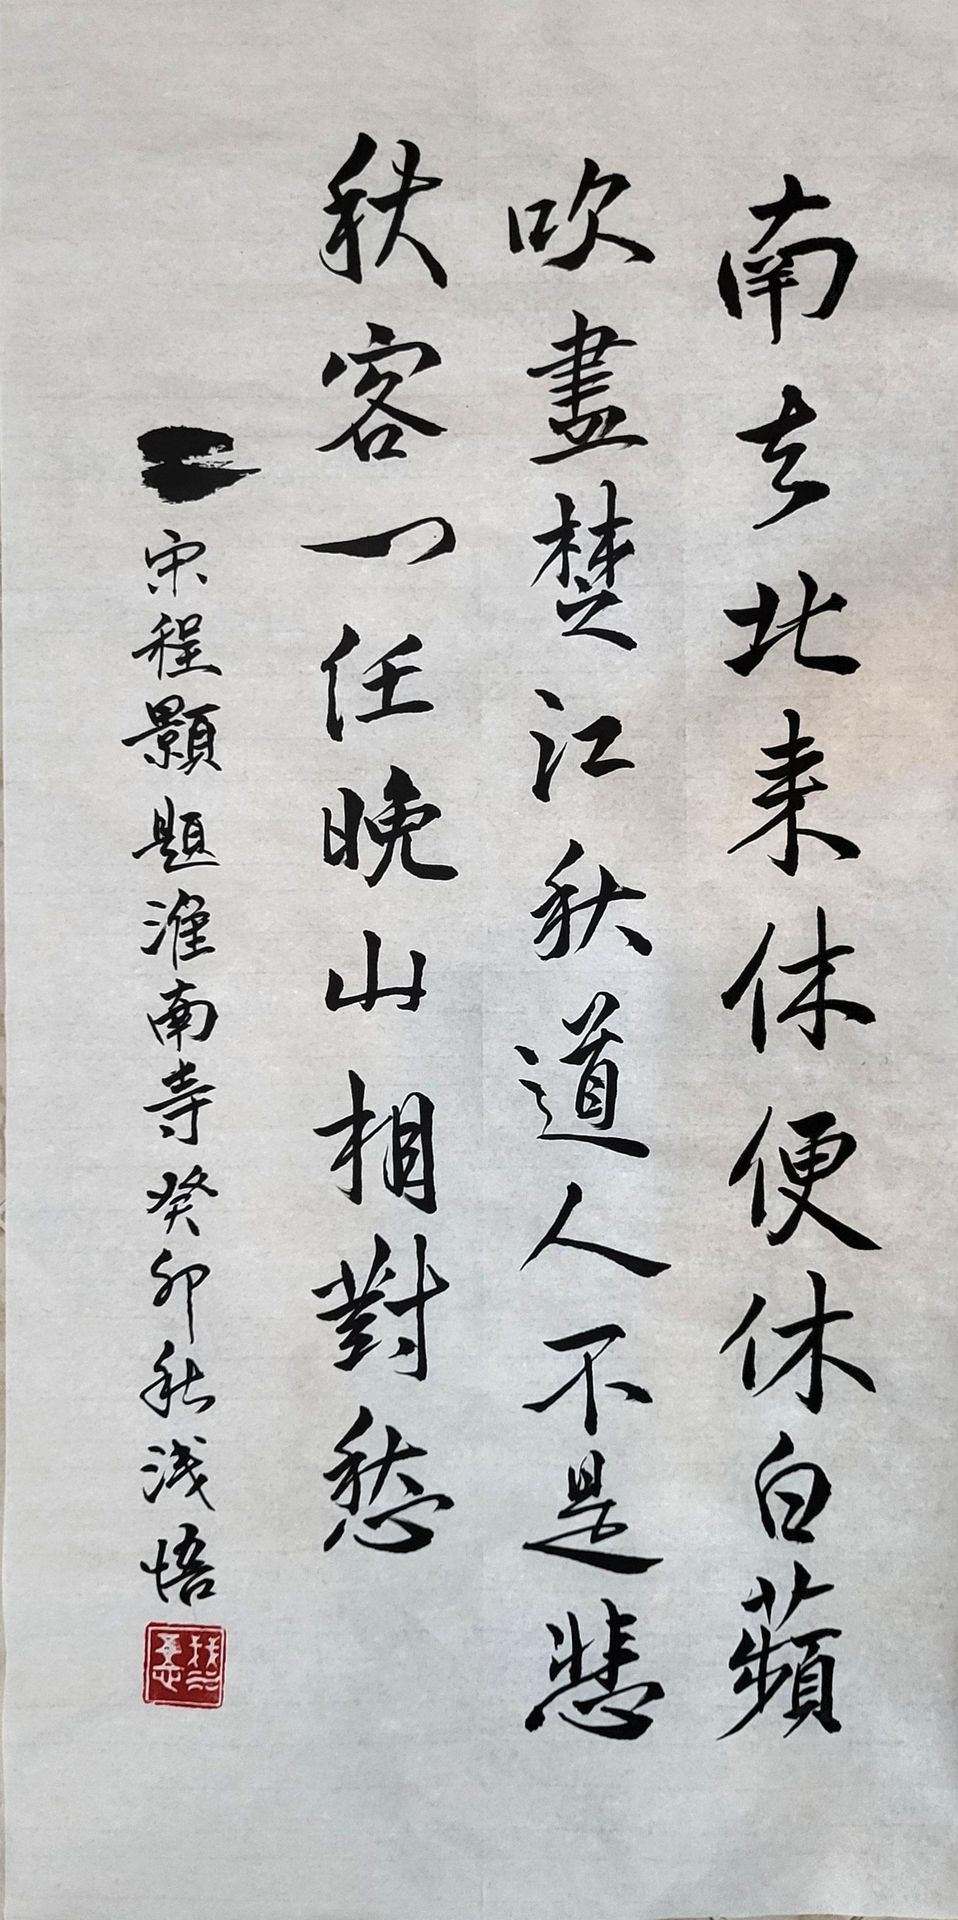 南去北来休便休白蘋
吹盡楚江秋道人不是悲
秋客一任晚山相對愁
宋程顥題淮南寺癸卯秋浅悟